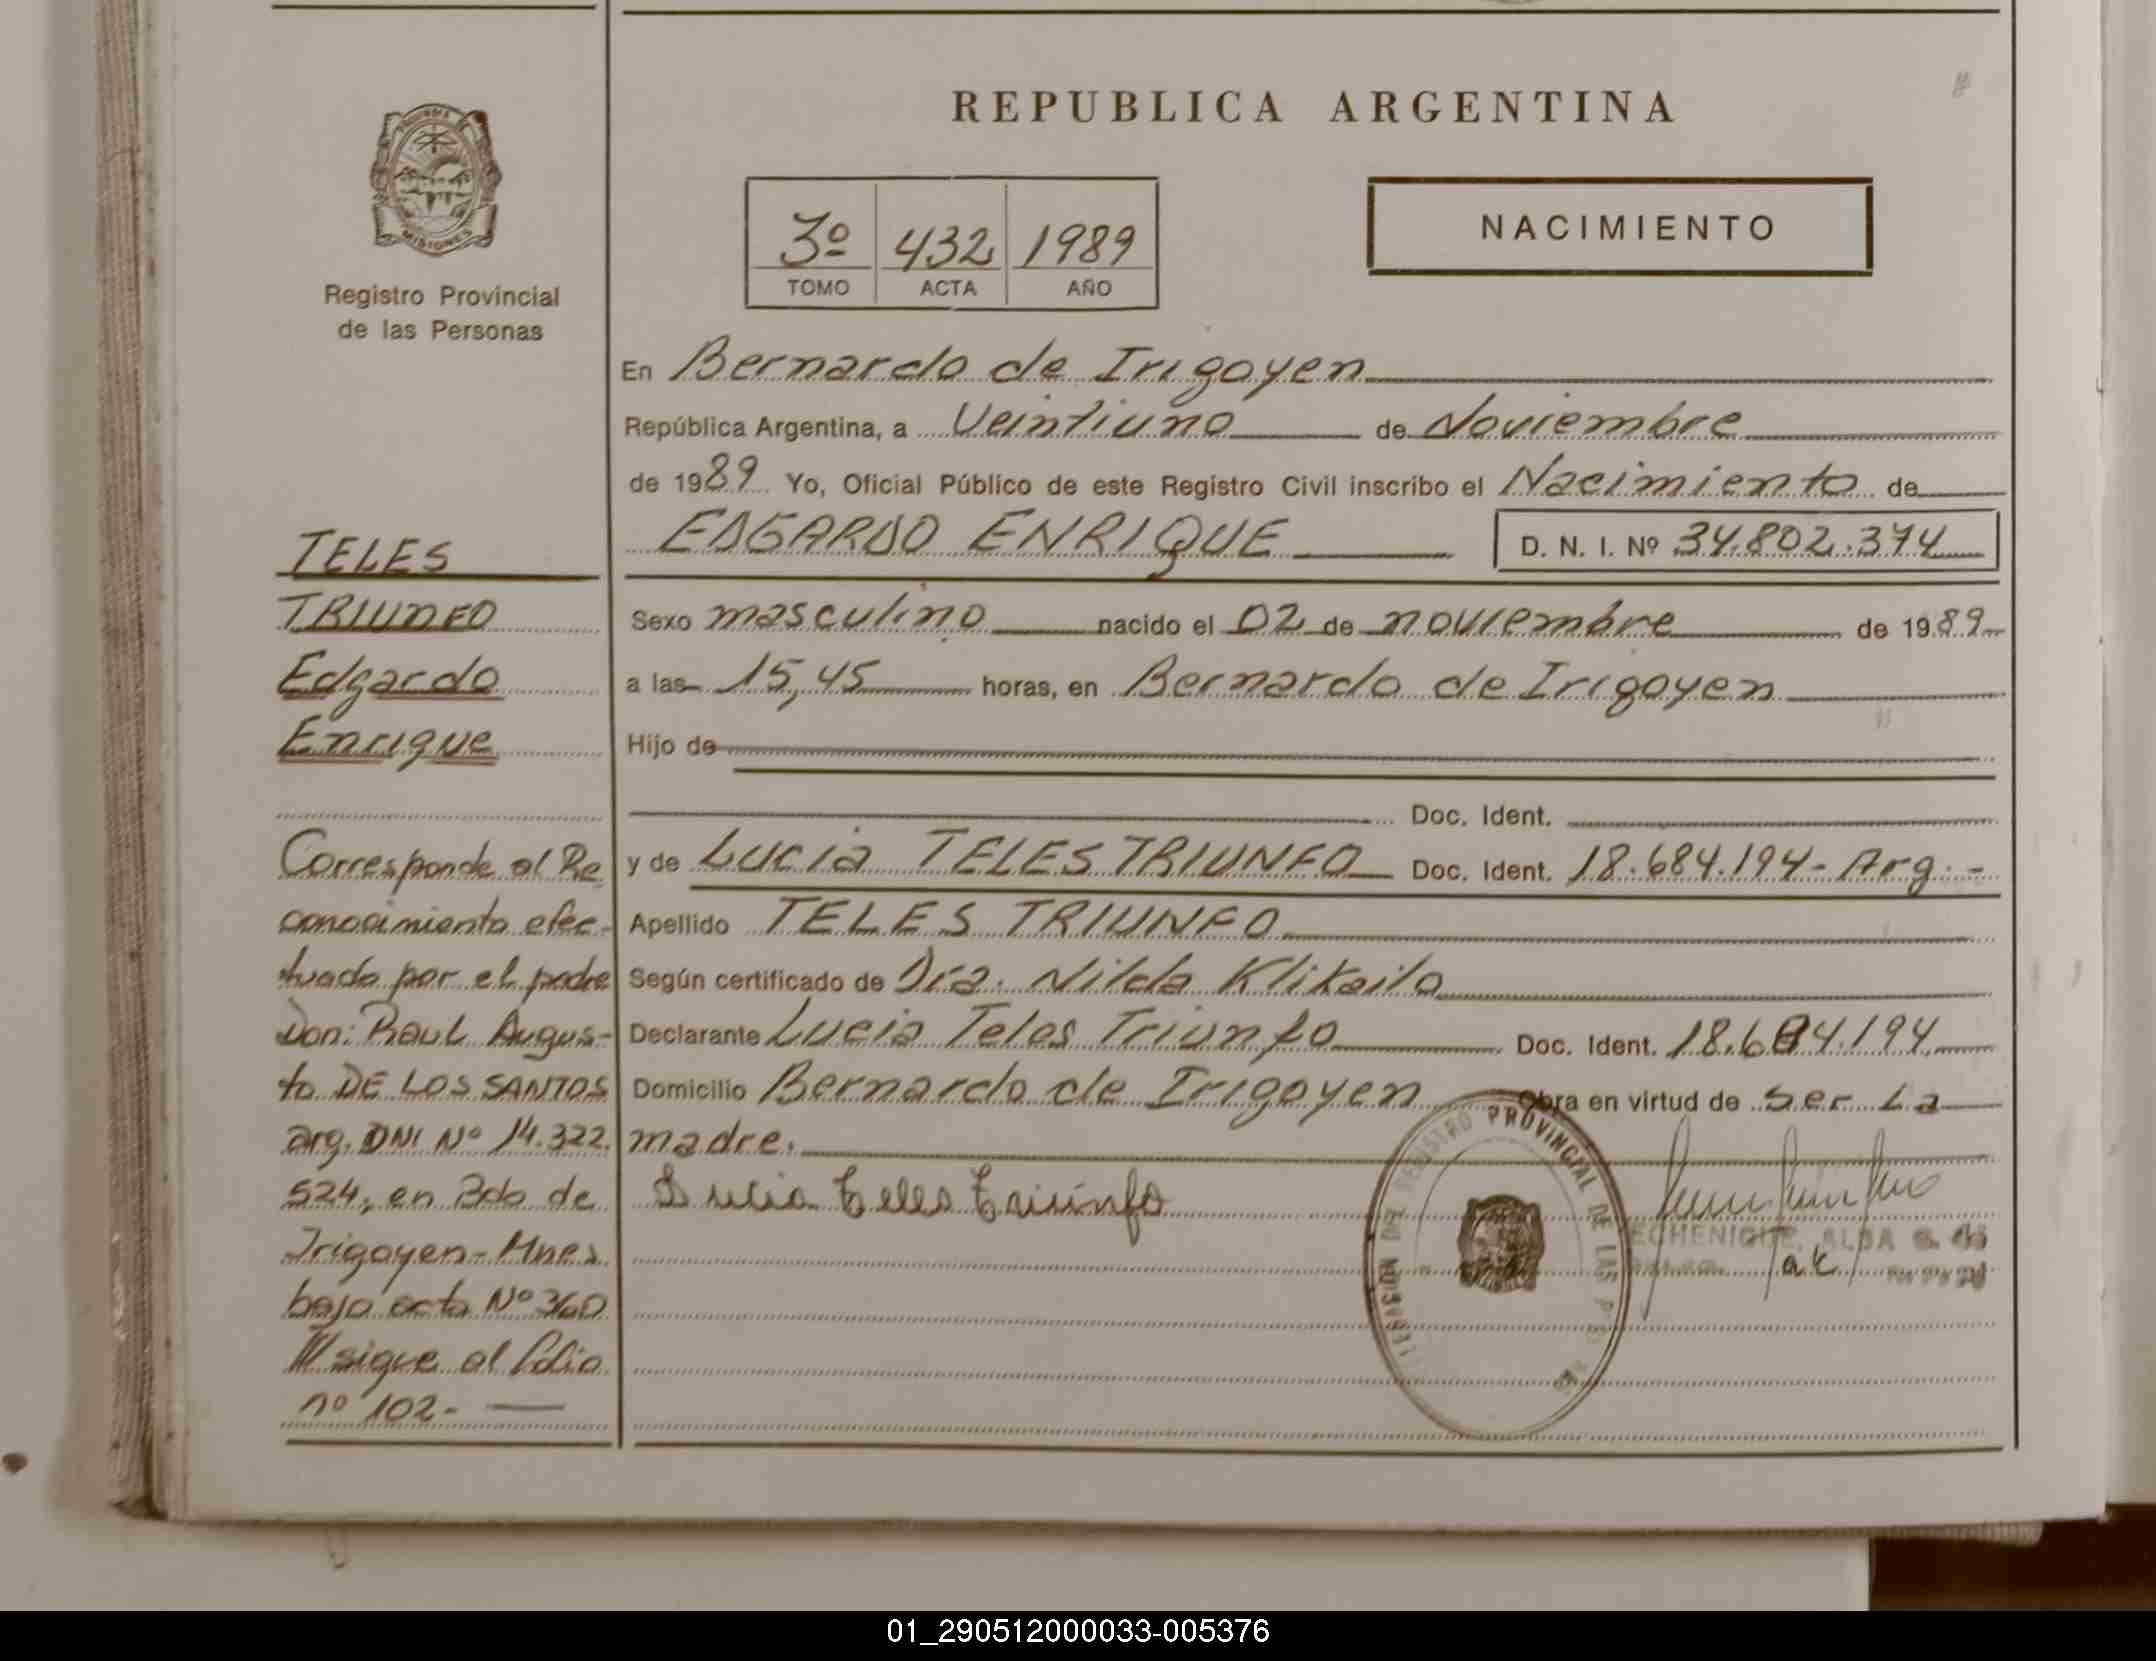 REPUBLICA ARGENTINA
PROVINCIA DE
MISIONES
Registro Provincial
de las Personas
3º 432 1989
TOMO ACTA AÑO
NACIMIENTO
En Bernardo de Irigoyen
República Argentina, a Veintiuno de Noviembre
de 1989 Yo, Oficial Público de este Registro Civil inscribo el Nacimiento de
EDGARDO ENRIQUE D. N. I. Nº 34.802.374
Sexo masculino nacido el 02 de noviembre de 1989
a las 15,45 horas, en Bernardo de Irigoyen
Hijo de
Doc. Ident.
y de Lucia TELES TRIUNFO Doc. Ident. 18.684.194- Arg.-
Apellido TELES TRIUNFO
Según certificado de Dra. Nilda Klikailo
Declarante Lucia Teles Triunfo Doc. Ident. 18.684.194
Domicilio Bernardo de Irigoyen Obra en virtud de ser La
madre.
Lucia Teles Triunfo
REGISTRO PROVINCIAL DE LAS
ECHENIQUE, ALDA
TELES
TRIUNFO
Edgardo
Enrique
Corresponde al Re
conocimiento efec-
tuado por el padre
Don: Raul Augus-
to DE LOS SANTOS
arg. DNI Nº 14.322.
524, en Bdo de
Irigoyen- Mnes
bajo acta Nº 360
sigue al folio
nº 102-
01_290512000033-005376